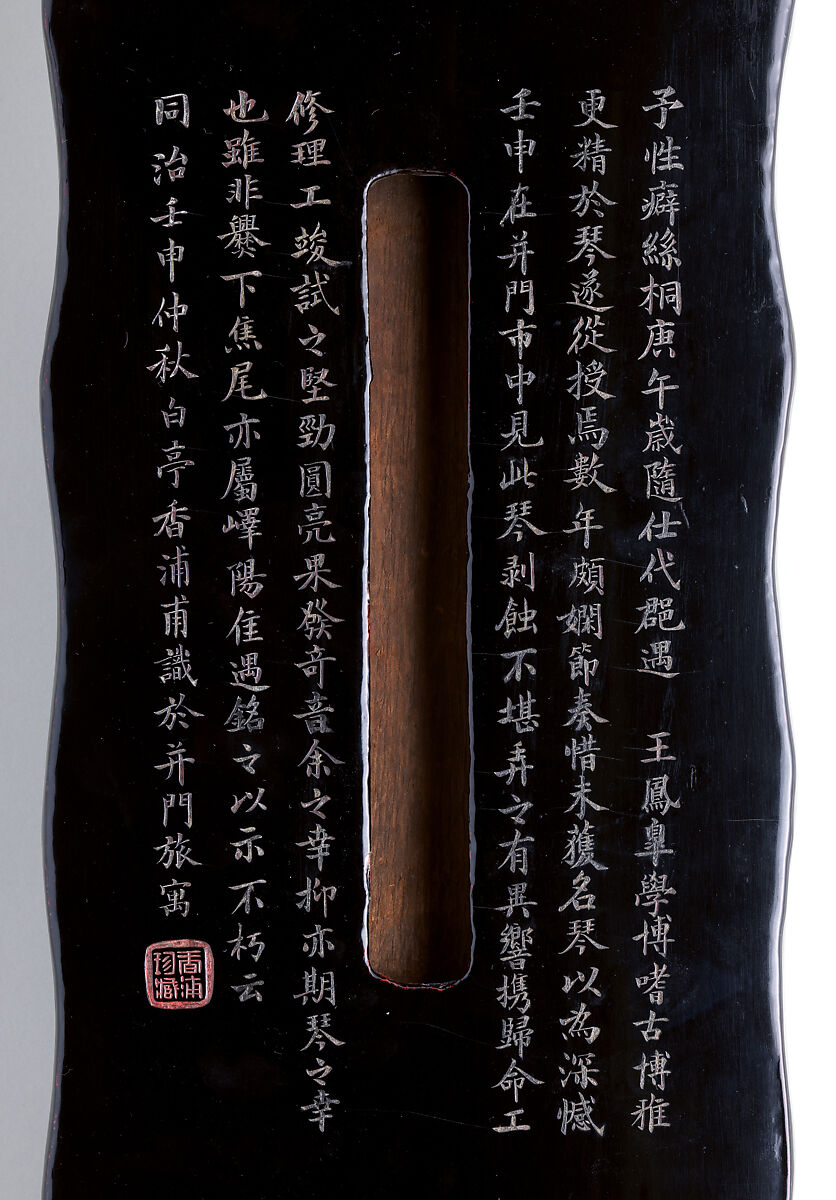 予性癖絲桐庚午歲隨仕代郡遇 王鳳臯學博嗜古博雅
更精於琴遂從授焉數年頗嫻節奏惜未獲名琴以為深憾
壬申在并門市中見此琴剥蝕不堪弄之有異響携歸命工
修理工竣試之堅勁圓亮果發奇音余之幸抑亦期琴之幸
也雖非爨下焦尾亦屬嶧陽佳遇銘之以示不朽云
同治壬申仲秋白亭香浦甫識於并門旅寓
香浦珍藏